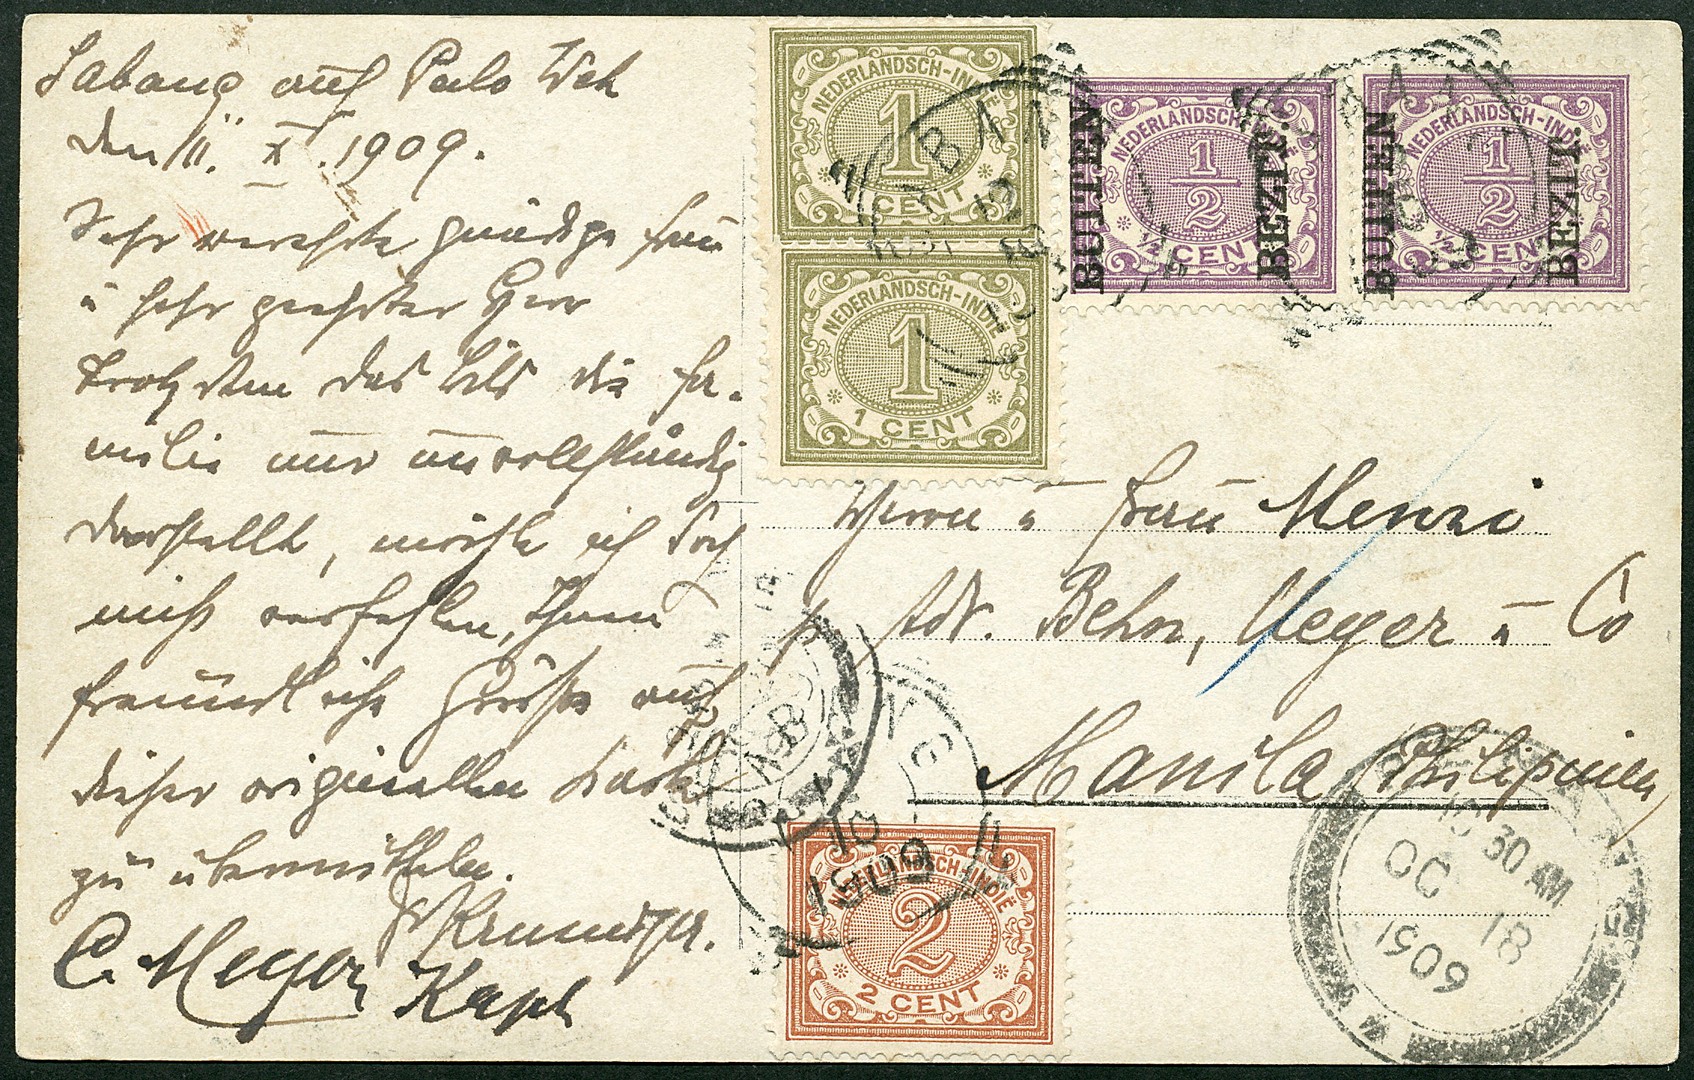 Sabang auf Pulo Weh
den 11. X. 1909.
Sehr verehrte gnädige Frau
u sehr geehrter Herr
Trotzdem das Bild die Fa-
milie nur unvollständig
darstellt, möchte ich doch
nicht verfehlen, Ihnen
freundliche Grüße auf
dieser originellen Karte
zu übermitteln.
C. Meyer, Kapt
NEDERLANDSCH-INDIË
1
CENT
NEDERLANDSCH-INDIË
1
1 CENT
NEDERLANDSCH-INDIË
1/2
1/2 CENT
BUITEN BEZIT.
NEDERLANDSCH-INDIË
1/2
1/2 CENT
BUITEN BEZIT.
Herrn u Frau Menzi
p Adr. Behn, Meyer u Co
Manila Philippinen
10 30 AM
OC 18
1909
NEDERLANDSCH-INDIË
2
2 CENT
11.
10
1909